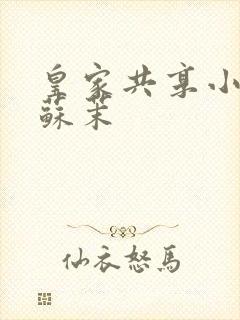 皇家共享小
蘇茉
仙衣怒馬